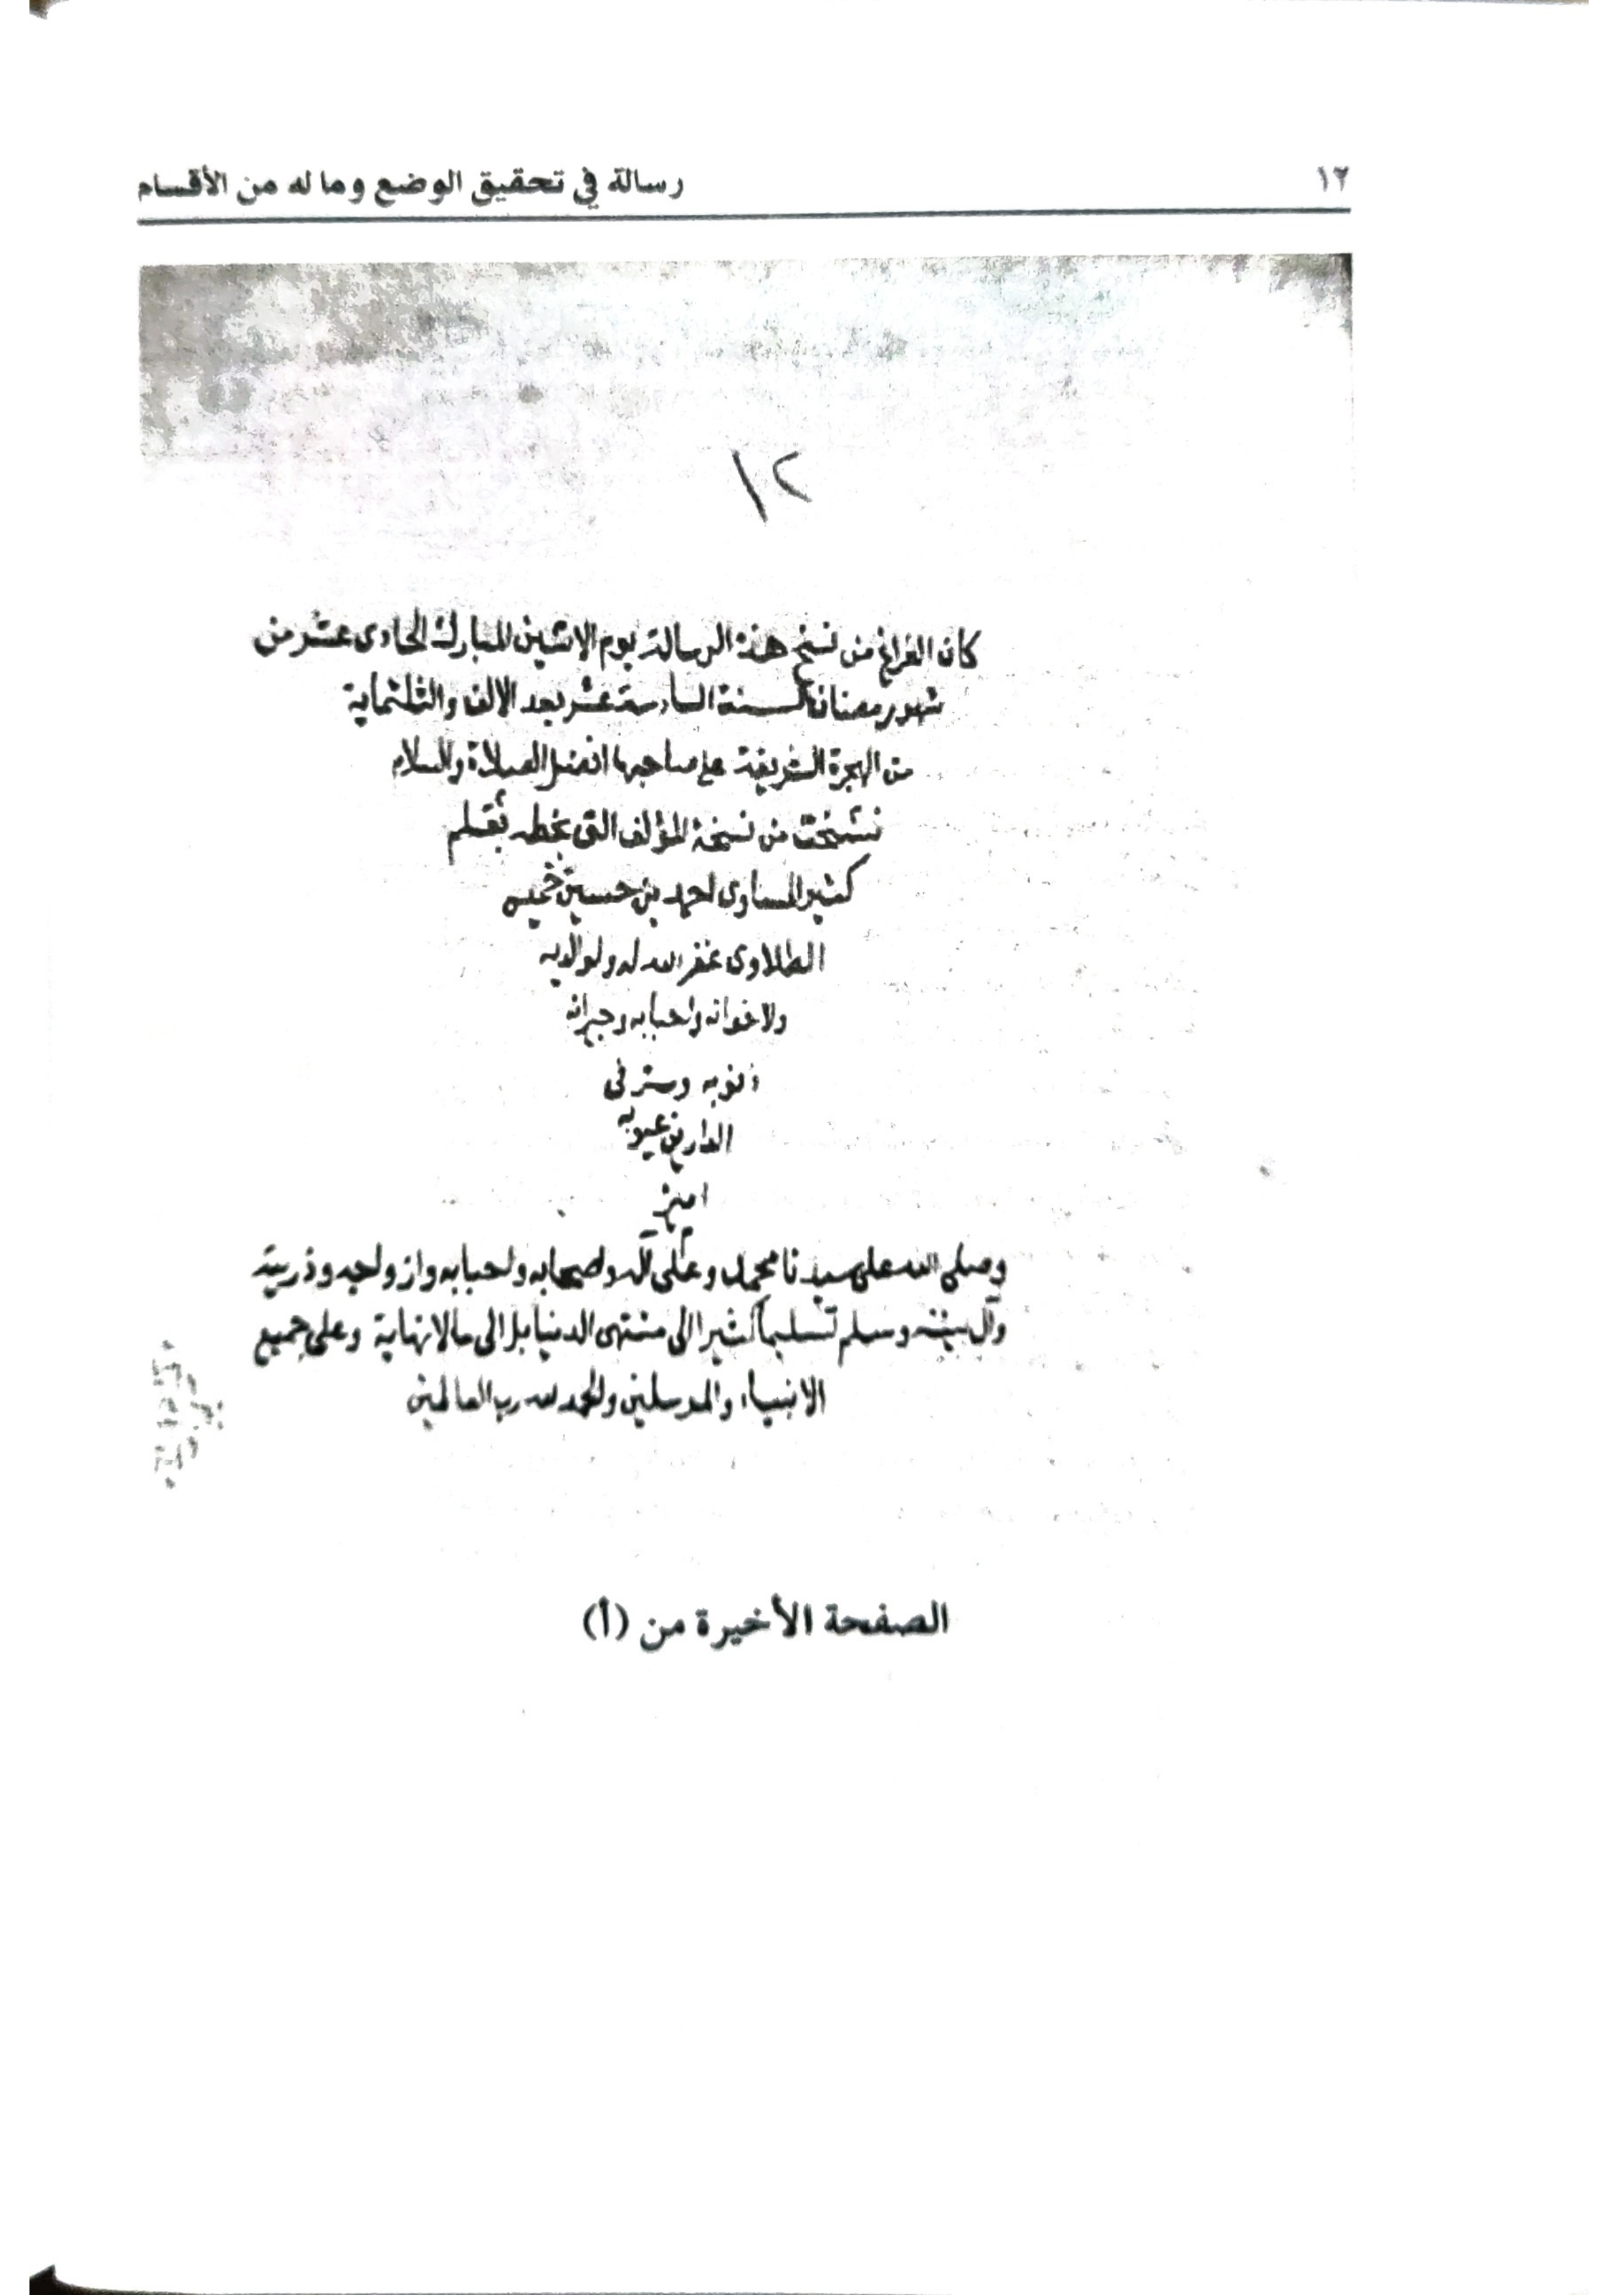 رسالة في تحقيق الوضع وما له من الأقسام ١٢
١٢
كان الفراغ من نسخ هذه الرسالة يوم الاثنين المبارك الحادى عشر من
شهر رمضان السنة السادسة عشر بعد الالف والثلثماية
من الهجرة الشريفة على صاحبها افضل الصلاة والسلام
نسخت من نسخة المؤلف التى بخطه بقلم
كثير المساوى احمد بن حسين خميس
الطلاوى غفر الله له ولوالديه
ولاخوانه واحبابه وجيرانه
ذنوبه وستر فى
الدارين عيوبه
امين
وصلى الله على سيدنا محمد وعلى آله واصحابه واحبابه وازواجه وذريته
وآل بيته وسلم تسليما كثيرا الى منتهى الدنيا بل الى مالانهاية وعلى جميع
الانبياء والمرسلين والحمد لله رب العالمين
الصفحة الأخيرة من (أ)